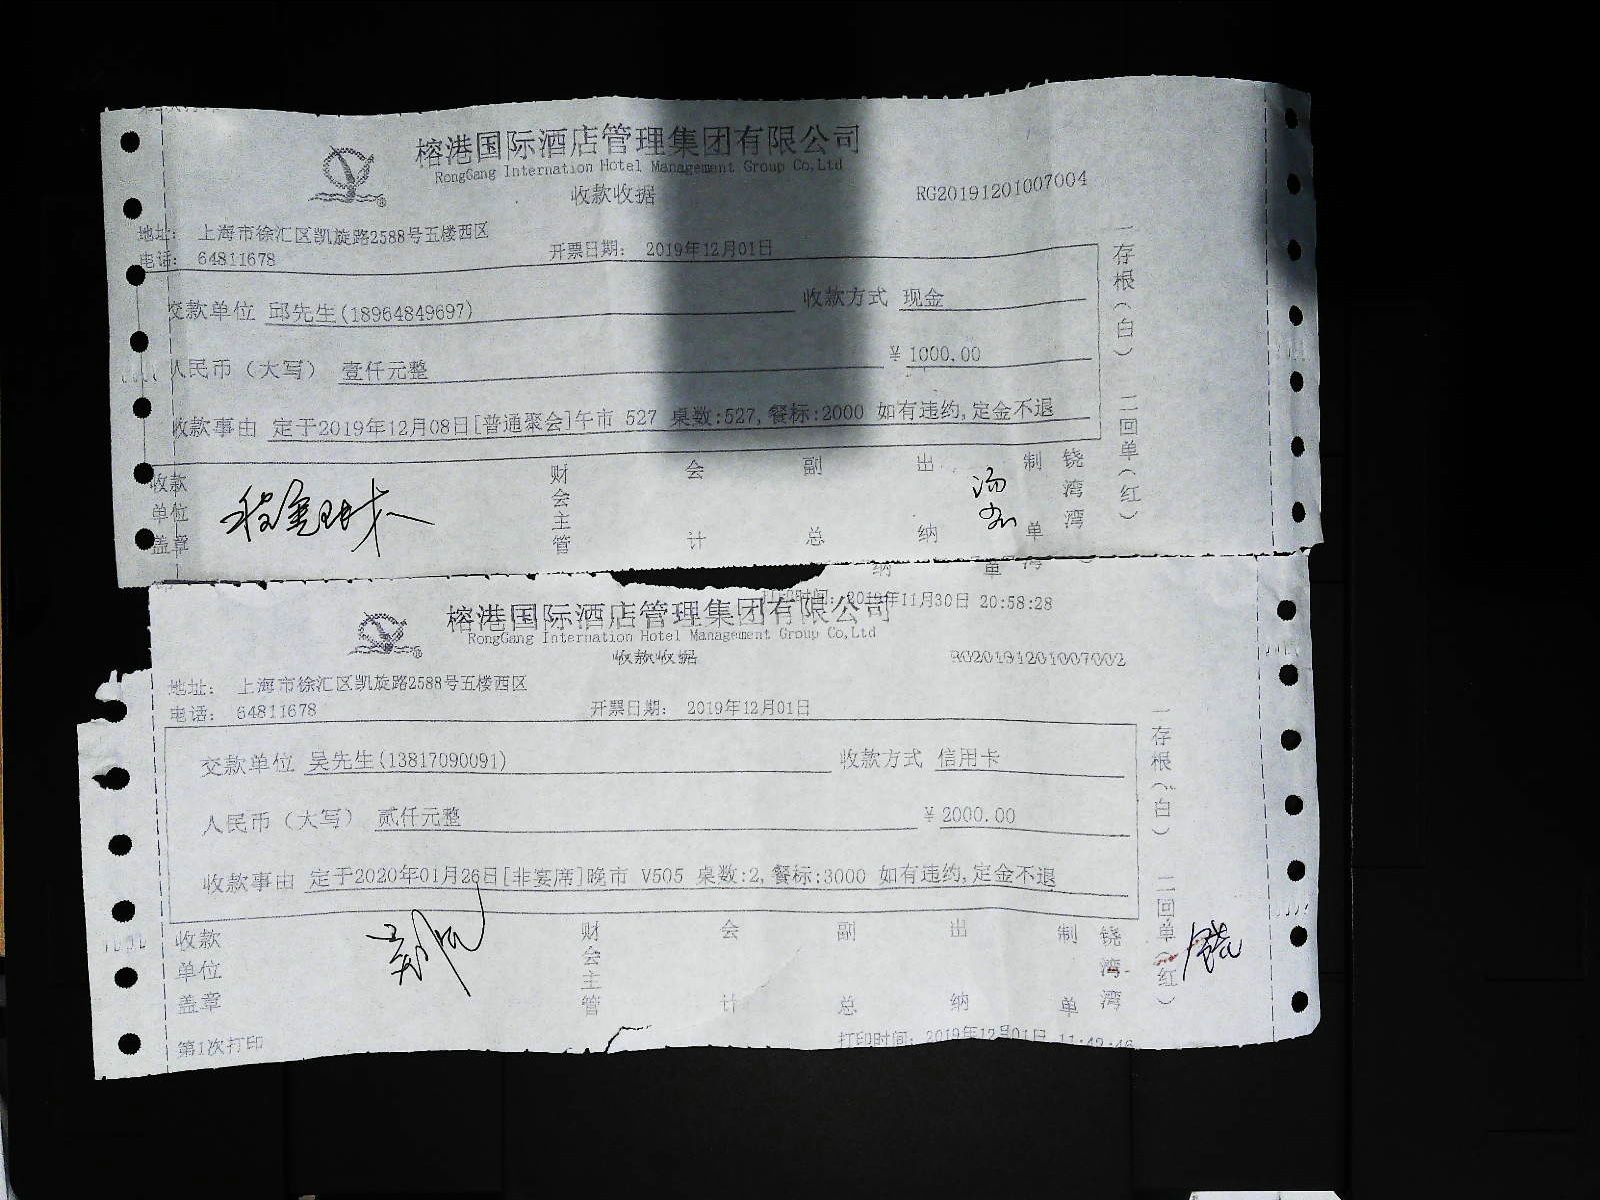 榕港国际酒店管理集团有限公司
RongGang Internation Hotel Management Group Co,Ltd
收款收据
RG20191201007004
地址: 上海市徐汇区凯旋路2588号五楼西区
电话: 64811678
开票日期: 2019年12月01日
交款单位 邱先生(18964849697)
收款方式 现金
人民币（大写） 壹仟元整
¥ 1000.00
收款事由 定于2019年12月08日[普通聚会]午市 527 桌数:527,餐标:2000 如有违约,定金不退
一存根（白） 二回单（红）
收款单位盖章
财会主管
会计
副总
出纳
制单
饶湾湾
2019年11月30日 20:58:28
榕港国际酒店管理集团有限公司
RongGang Internation Hotel Management Group Co,Ltd
收款收据
RG20191201007002
地址: 上海市徐汇区凯旋路2588号五楼西区
电话: 64811678
开票日期: 2019年12月01日
交款单位 吴先生(13817090091)
收款方式 信用卡
人民币（大写） 贰仟元整
¥ 2000.00
收款事由 定于2020年01月26日[非宴席]晚市 V505 桌数:2,餐标:3000 如有违约,定金不退
一存根（白） 二回单（红）
收款单位盖章
财会主管
会计
副总
出纳
制单
饶湾湾
饶
第1次打印
打印时间: 2019年12月01日 11:42:46